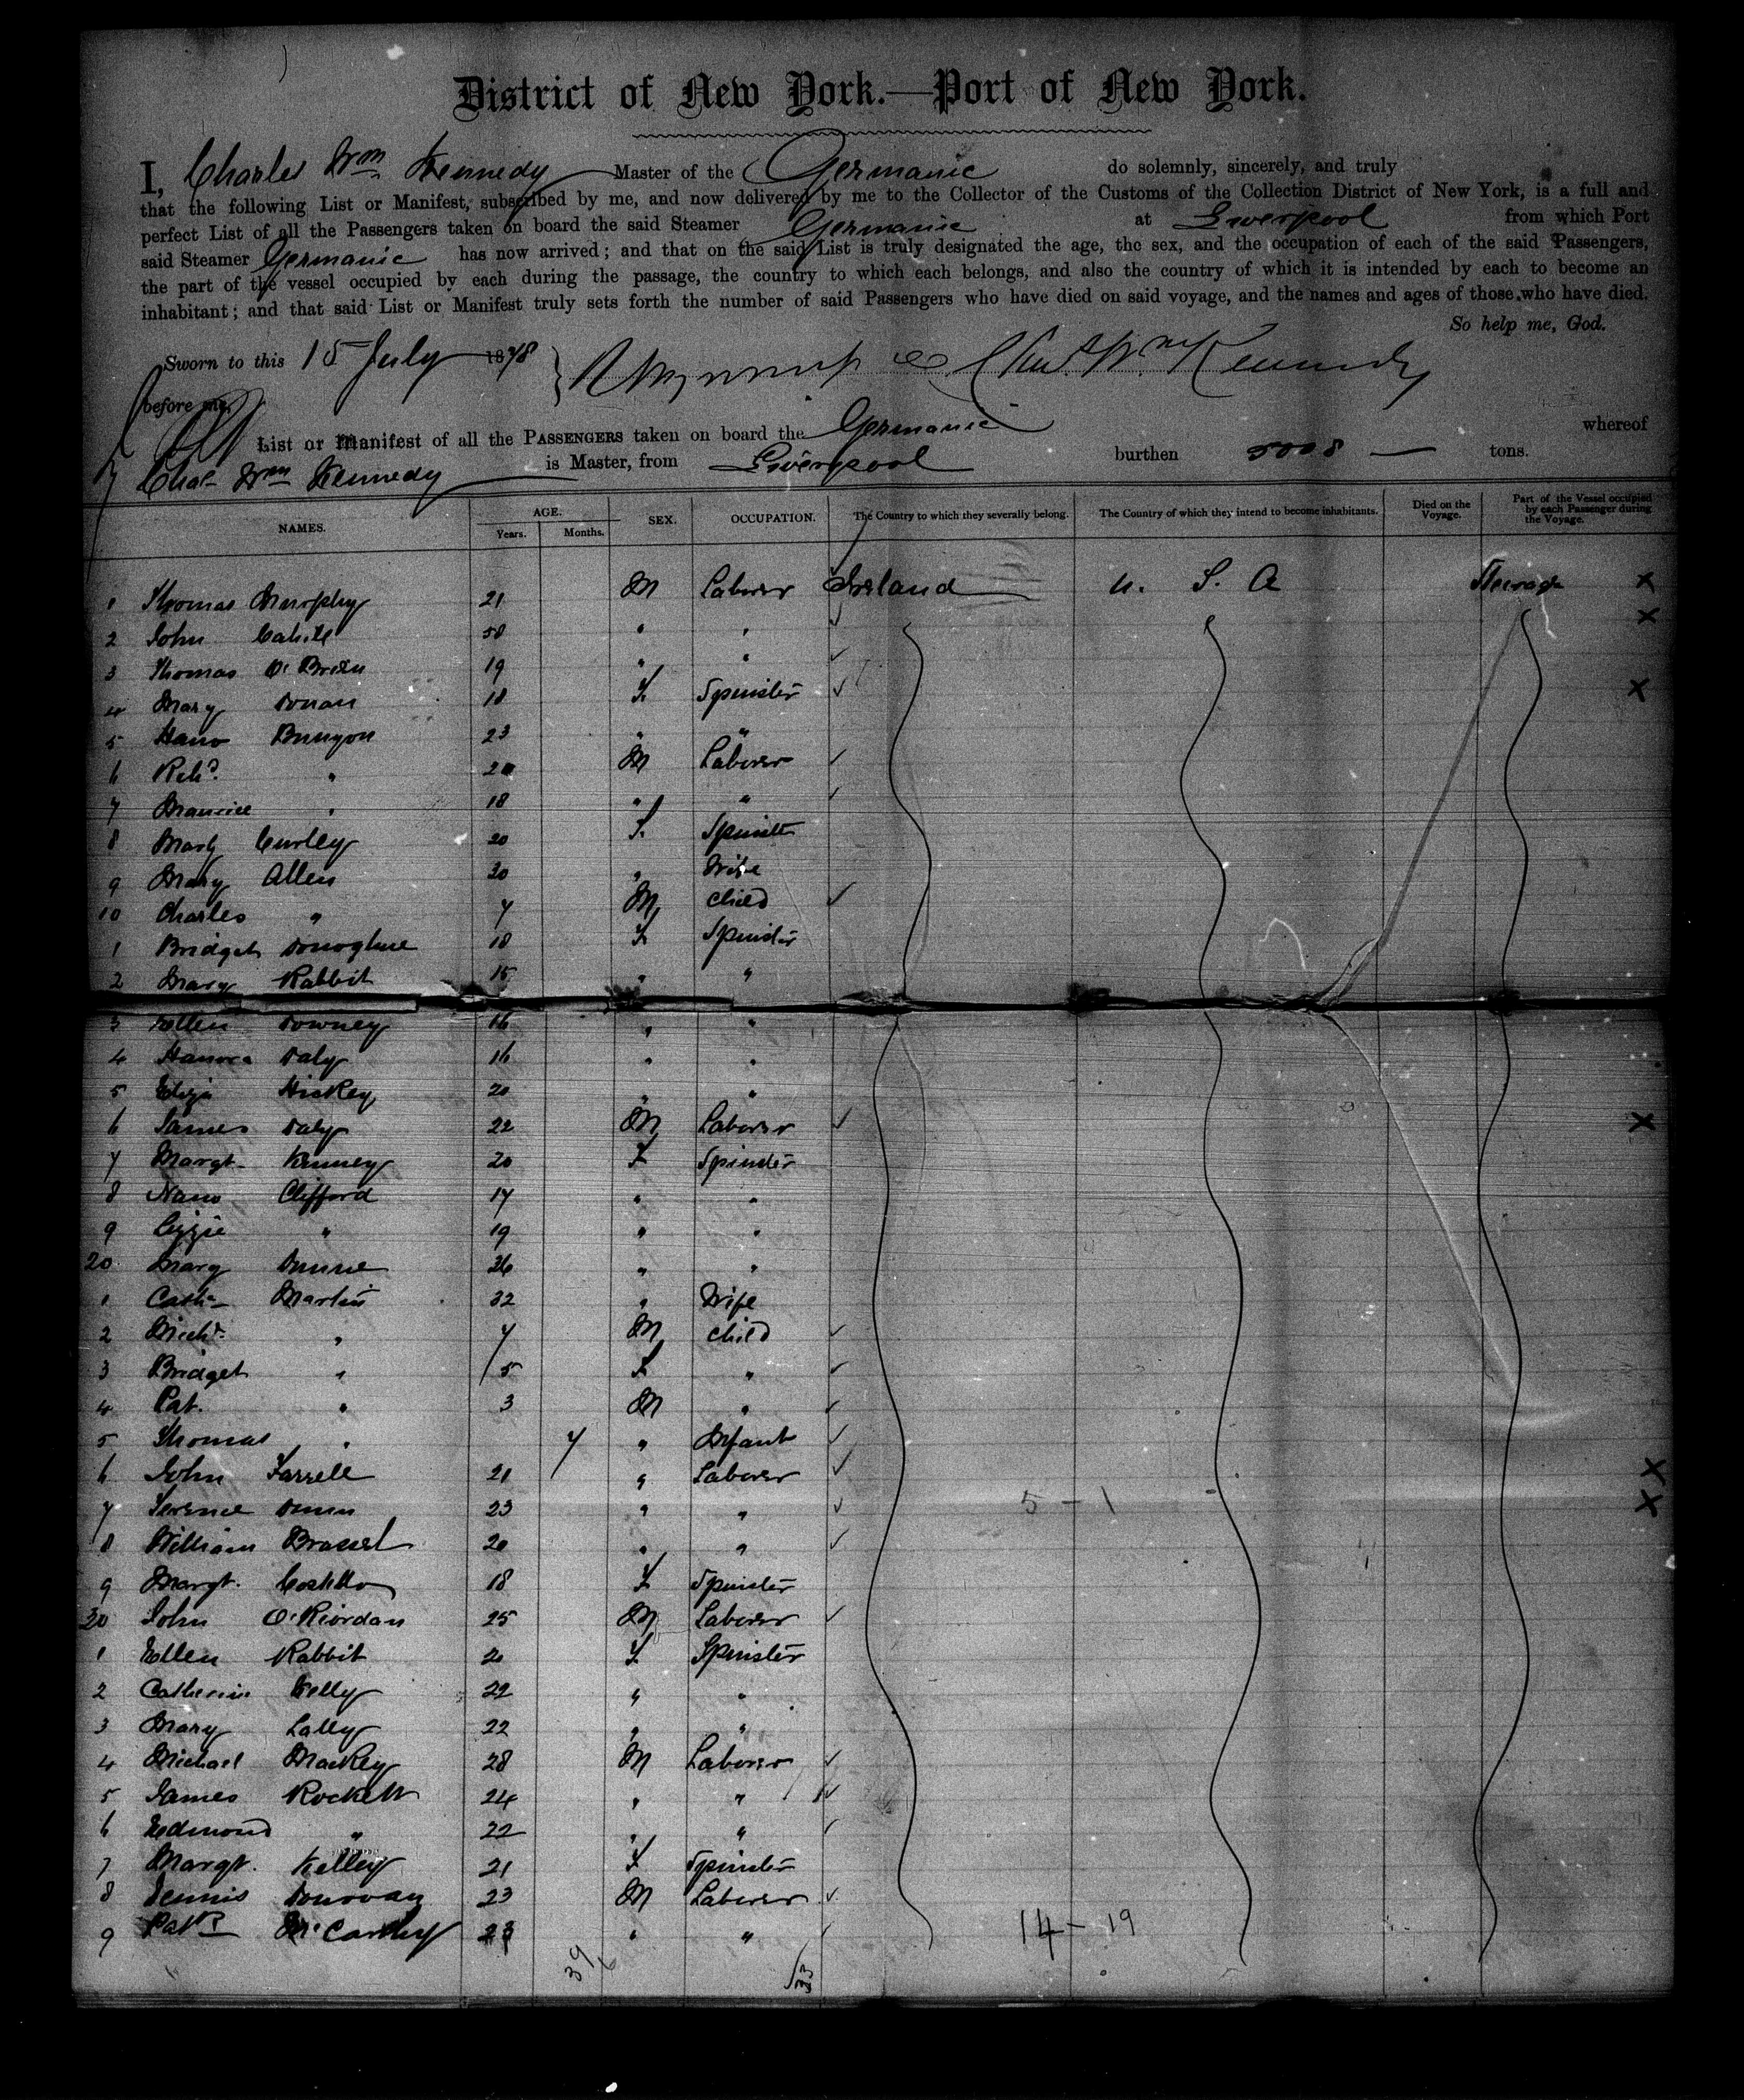 District of New York.—Port of New York.
I, Charles Wm Kennedy Master of the Germanic do solemnly, sincerely, and truly
that the following List or Manifest, subscribed by me, and now delivered by me to the Collector of the Customs of the Collection District of New York, is a full and
perfect List of all the Passengers taken on board the said Steamer Germanic at Liverpool from which Port
said Steamer Germanic has now arrived; and that on the said List is truly designated the age, the sex, and the occupation of each of the said Passengers,
the part of the vessel occupied by each during the passage, the country to which each belongs, and also the country of which it is intended by each to become an
inhabitant; and that said List or Manifest truly sets forth the number of said Passengers who have died on said voyage, and the names and ages of those who have died.
So help me, God.
Sworn to this 15 July 1878 Chas. Wm Kennedy
before me,
List or Manifest of all the PASSENGERS taken on board the Germanic whereof
Chas Wm Kennedy is Master, from Liverpool burthen 5008 — tons.
NAMES. AGE. Years. Months. SEX. OCCUPATION. The Country to which they severally belong. The Country of which they intend to become inhabitants. Died on the Voyage. Part of the Vessel occupied by each Passenger during the Voyage.
1 Thomas Murphy 21 M Laborer Ireland U. S. A Steerage X
2 John Cahill 50 " " X
3 Thomas O'Brien 19 " "
4 Mary 18 F. Spinster X
5 Hano Bunyon 23 " "
6 Richd. " 20 M Laborer
7 Maurice " 18 " "
8 Mary Curley 20 F. Spinster
9 Mary Allen 30 " Wife
10 Charles " 7 M Child
1 Bridget Donoghue 18 F Spinster
2 Mary Rabbit 15 " "
3 Ellen Downey 16 " "
4 Hanora Daly 16 " "
5 Eliza Hickey 20 " "
6 James Daly 22 M Laborer X
7 Margt. Kenney 20 F Spinster
8 Nano Clifford 17 " "
9 Lizzie " 19 " "
20 Mary Dunne 26 " "
1 Cathe Martin 32 " Wife
2 Michl. " 7 M Child
3 Bridget " 5 F "
4 Pat. " 3 M "
5 Thomas " 7 " Infant
6 John Farrell 21 " Laborer X
7 Terence 23 " " 5 - 1 X
8 William Brassel 20 " "
9 Margt. Costello 18 F Spinster
30 John O'Riordan 25 M Laborer
1 Ellen Rabbit 20 F Spinster
2 Catherine Kelly 22 " "
3 Mary Lally 22 " "
4 Michael Mackey 28 M Laborer
5 James Rockett 24 " "
6 Edmond " 22 " "
7 Margt. Kelley 21 F Spinster
8 Dennis Donovan 23 M Laborer
9 Patk McCarthy 23 " " 14 - 19
39